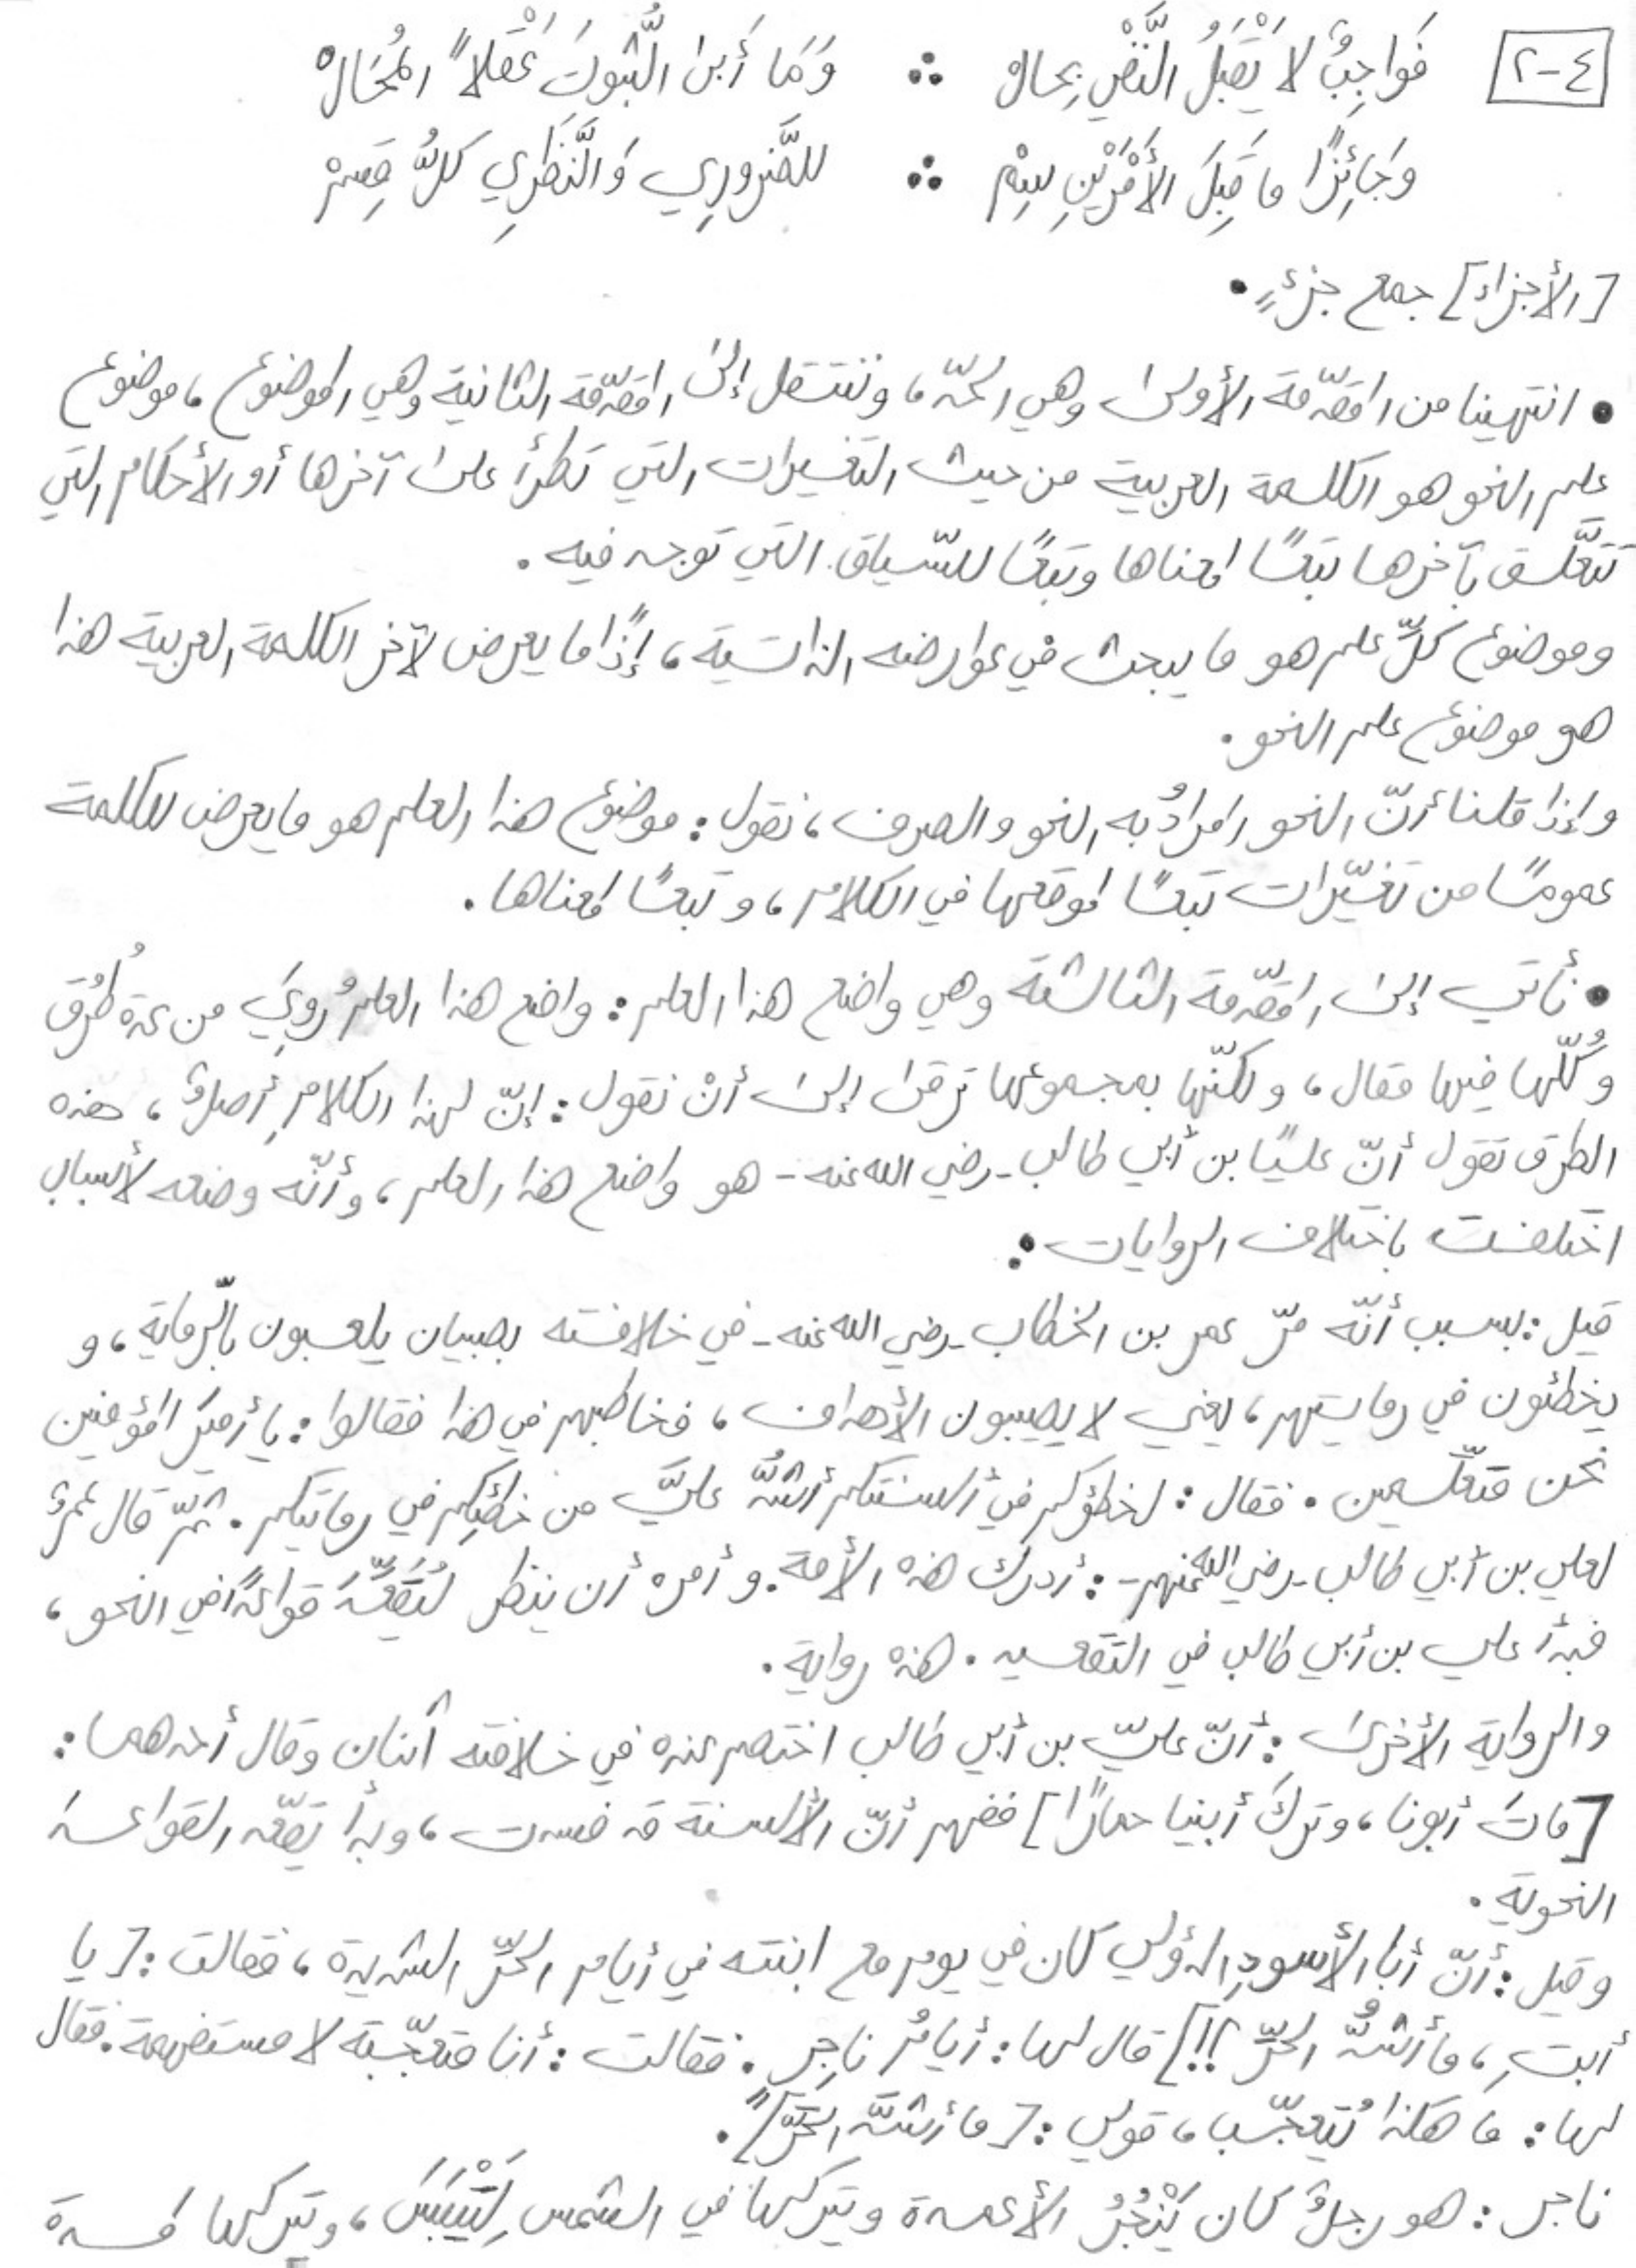 ٤-٢ فَوَاجِبٌ لَا يَقْبَلُ النَّفْيَ بِحَالْ ∴ وَمَا أَبَى الثُّبُوتَ عَقْلًا المُحَالْ
وَجَائِزًا مَا قَبِلَ الأَمْرَيْنِ سِمْ ∴ للضَّرُورِي وَالنَّظَرِي كلٌّ قُسِمْ
[الأجزاء] جمع جزءٍ.
• انتهينا من المقدّمة الأولى وهي الحدّ، وننتقل إلى المقدّمة الثانية وهي الموضوع، موضوع
علم النحو هو الكلمة العربية من حيث التغييرات التي تطرأ على آخرها أو الأحكام التي
تتعلَّق بآخرها تبعًا لمعناها وتبعًا للسّياق التي توجد فيه.
وموضوع كلِّ علم هو ما يبحث في عوارضه الذاتية، إذًا ما يعرض لآخر الكلمة العربية هذا
هو موضوع علم النحو.
وإذا قلنا أنّ النحو المرادُ به النحو والصرف، نقول: موضوع هذا العلم هو ما يعرض للكلمة
عمومًا من تغيّرات تبعًا لموقعها في الكلام، وتبعًا لمعناها.
• نأتي إلى المقدّمة الثالثة وهي واضع هذا العلم: واضع هذا العلم رُوِيَ من عدة طُرُق
وكُلّها فيها مقال، ولكنّها بمجموعها ترقى إلى أنْ نقول: إنّ لهذا الكلامِ أصلٌ، هذه
الطرق تقول أنّ عليًا بن أبي طالب -رضي الله عنه- هو واضع هذا العلم، وأنّه وضعه لأسباب
اختلفت باختلاف الروايات:
قيل: بسبب أنّه مرّ عمر بن الخطاب -رضي الله عنه- في خلافته بصبيان يلعبون بالرّماية، و
يخطئون في رمايتهم، يعني لا يصيبون الأهداف، فخاطبهم في هذا فقالوا: يا أميرَ المؤمنين
نحن متعلّمين. فقال: لخطؤكم في ألسنتكم أشدُّ عليَّ من خطئِكم في رمايتكم. ثمّ قال عمرُ
لعلي بن أبي طالب -رضي الله عنهم-: أدرك هذه الأمة. وأمره أن ينظر ليُقَعِّدَ قواعدًا في النحو،
فبدأ علي بن أبي طالب في التقعيد. هذه رواية.
والرواية الأخرى: أنّ عليّ بن أبي طالب اختصم عنده في خلافته اثنان وقال أحدهما:
[ماتَ أبونا، وتركَ أبينا حمارًا] ففهم أنّ الألسنة قد فسدت، وبدأ يقعّد القواعد
النحوية.
وقيل: أنّ أبا الأسودِ الدؤلي كان في يوم مع ابنته في أيام الحرِّ الشديدة، فقالت: [يا
أبتِ، ما أشدُّ الحرِّ؟!!] قال لها: أيامُ ناجِر. فقالت: أنا متعجّبة لا مستفهمة. فقال
لها: ما هكذا يُتعجّب، قولي: [ما أشدَّ الحَرَّ]".
ناجر: هو رجلٌ كان يَنْجُرُ الأعمدة ويتركها في الشمس لِتَيْبَسَ، ويتركها لمدة